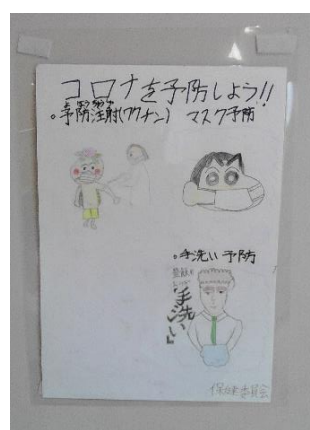 コロナを予防しよう!!
。予防注射(ワクチン) マスク予防
。手洗い 予防
手洗い』
保健委員会